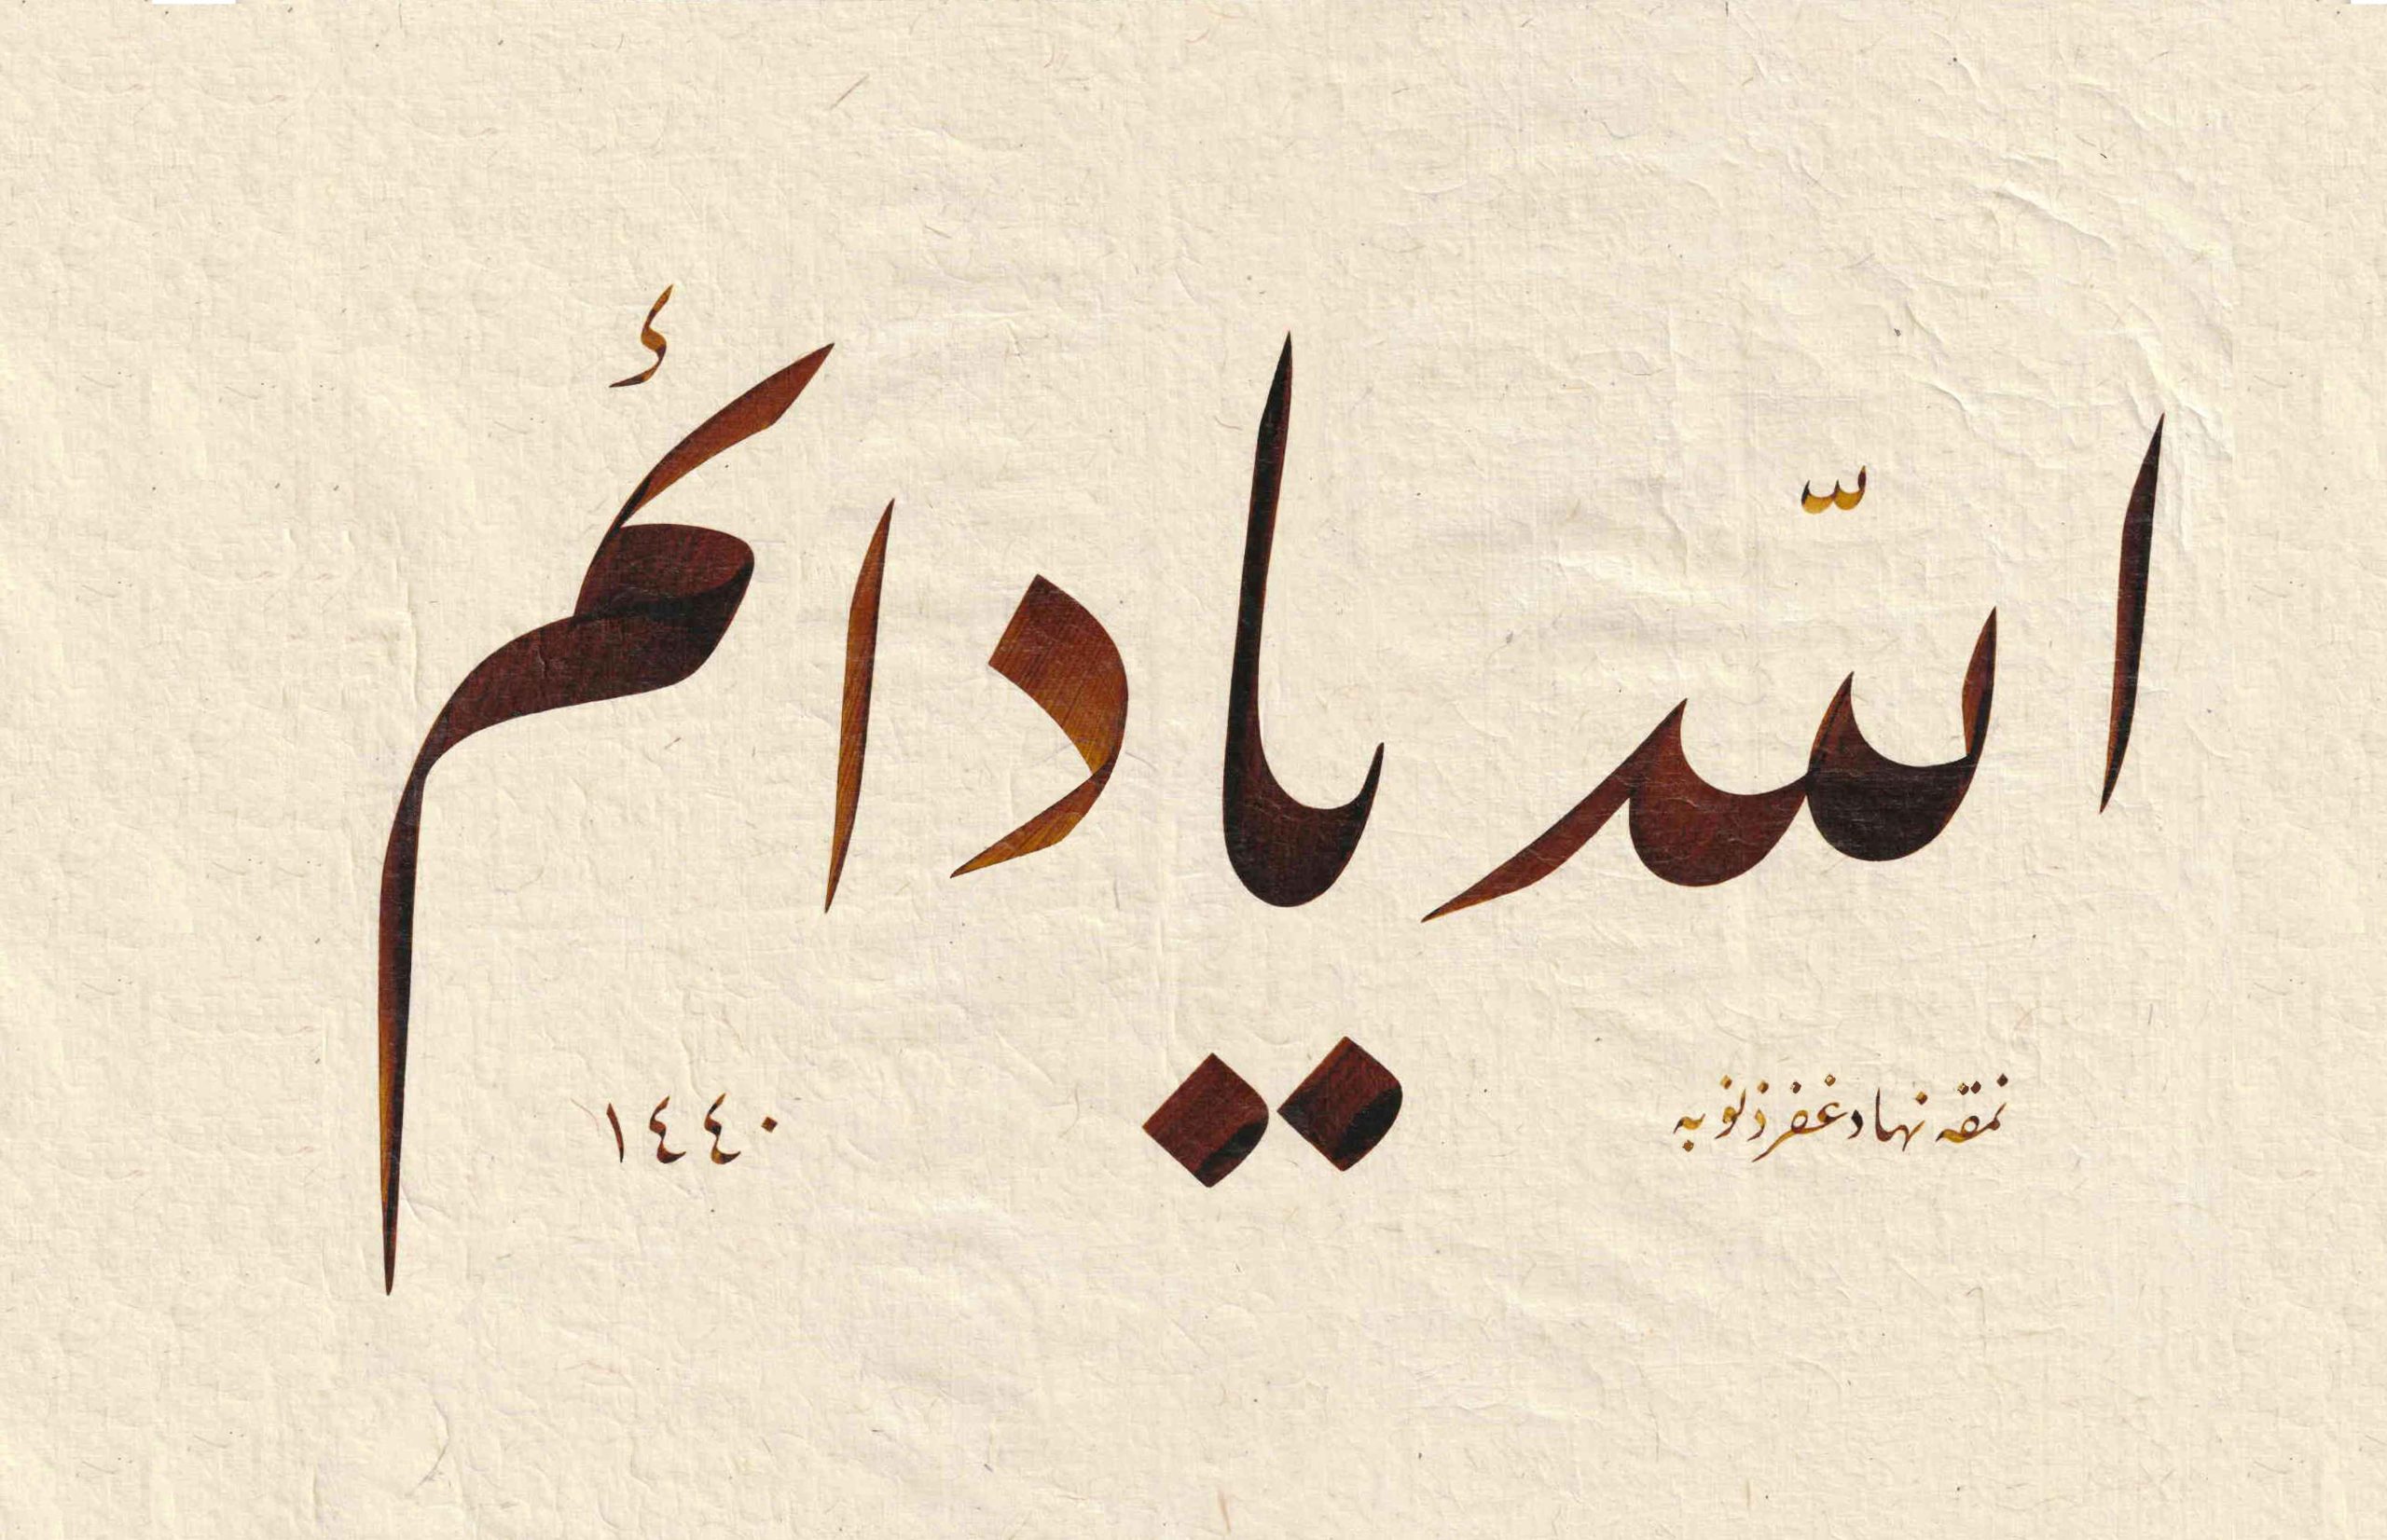 الله يا دائم
نمقه نهاد غفر ذنوبه
١٤٤٠